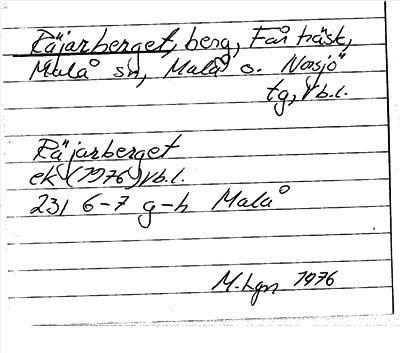 Räjarberget, berg, Fårträsk,
Malå sn, Malå o. Norsjö
tg, Vb.l.
Räjarberget
ek (1976) Vb.l.
23I 6-7 g-h Malå
M.hgn 1976